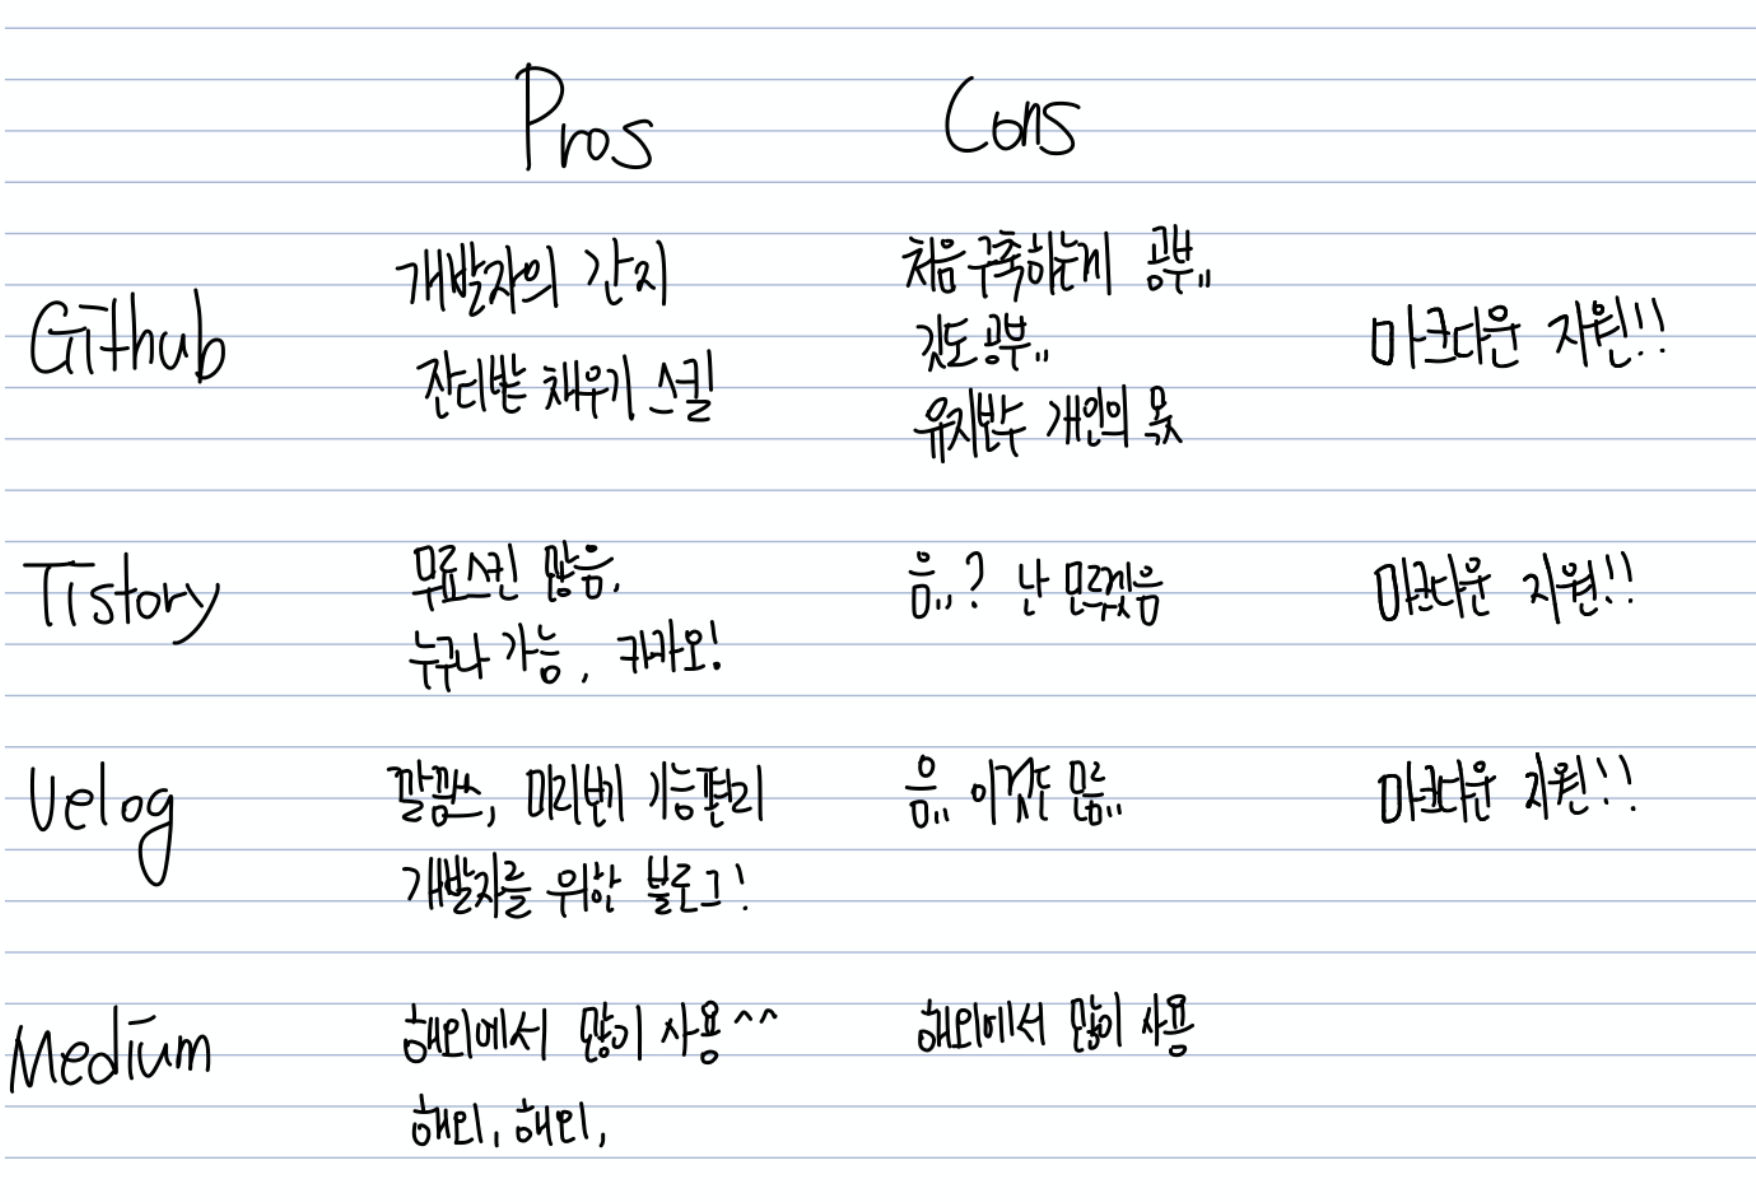 Pros Cons
개발자의 간지
잔디밭 채우기 스킬
처음 구축하는게 공부..
깃도 공부..
유지보수 개인의 몫
Github
마크다운 지원!!
무료스킨 많음,
누구나 가능, 카카오!
음..? 난 모르겠음
Tistory
마크다운 지원!!
깔끔쓰, 미리보기 기능편리
개발자를 위한 블로그!
음.. 이것도 모름..
Velog
마크다운 지원!!
해외에서 많이 사용^^
해외, 해외,
해외에서 많이 사용
Medium